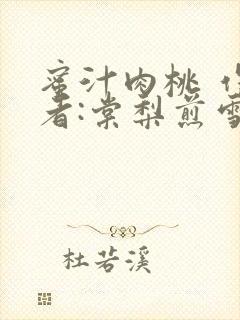 蜜汁肉桃 作
者:棠梨煎雪
杜若溪